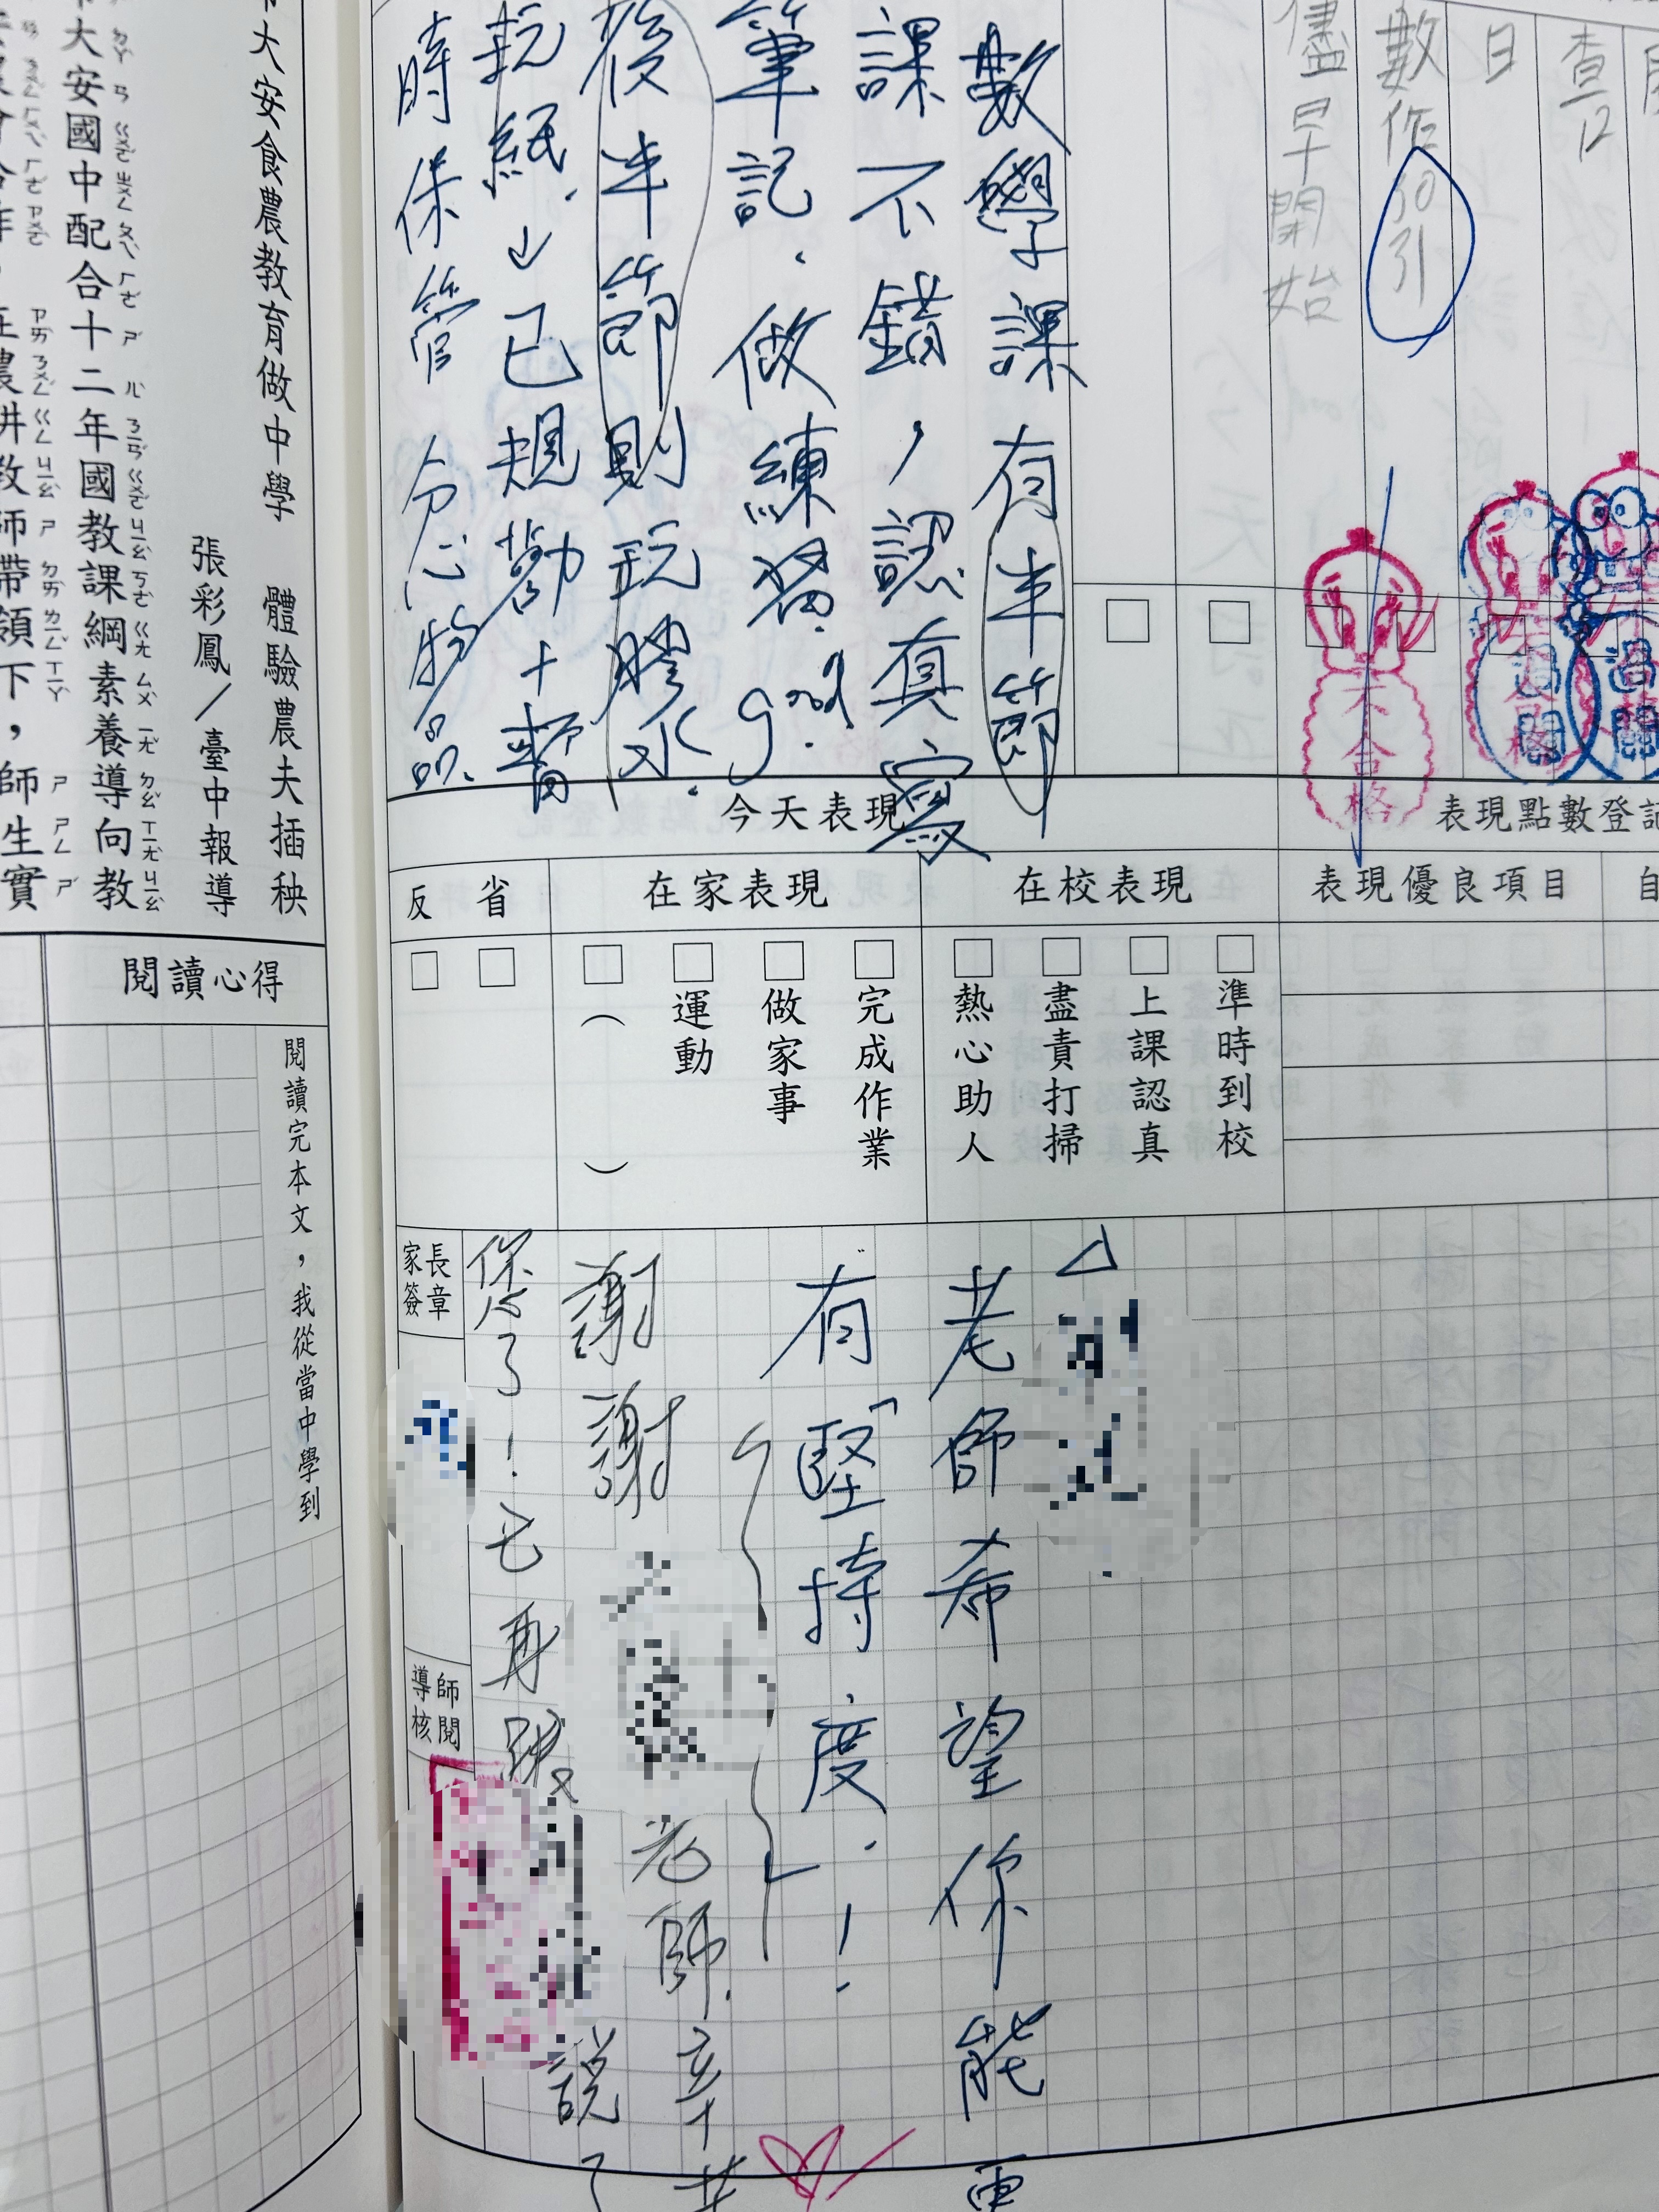 查12
日
數作
30
31
儘早開始
數學課有半節
課不錯，認真寫
筆記．做練習．good.
後半節則玩膠水．
玩紙．→已規勸＋暫
時保管 分心物品．
表現點數登記
今天表現
表現優良項目
在校表現
在家表現
省
反
□準時到校
□上課認真
□盡責打掃
□熱心助人
□完成作業
□做家事
□運動
□（ ）
□
□
過關
過關
不合格
不合格
老師希望你能更
有「堅持度．！
謝謝
老師．辛苦
您了！已再跟
說了
家長簽章
導師核閱
大安食農教育做中學 體驗農夫插秧
張彩鳳／臺中報導
大安國中配合十二年國教課綱素養導向教
師帶領下，師生實
閱讀心得
閱讀完本文，我從當中學到